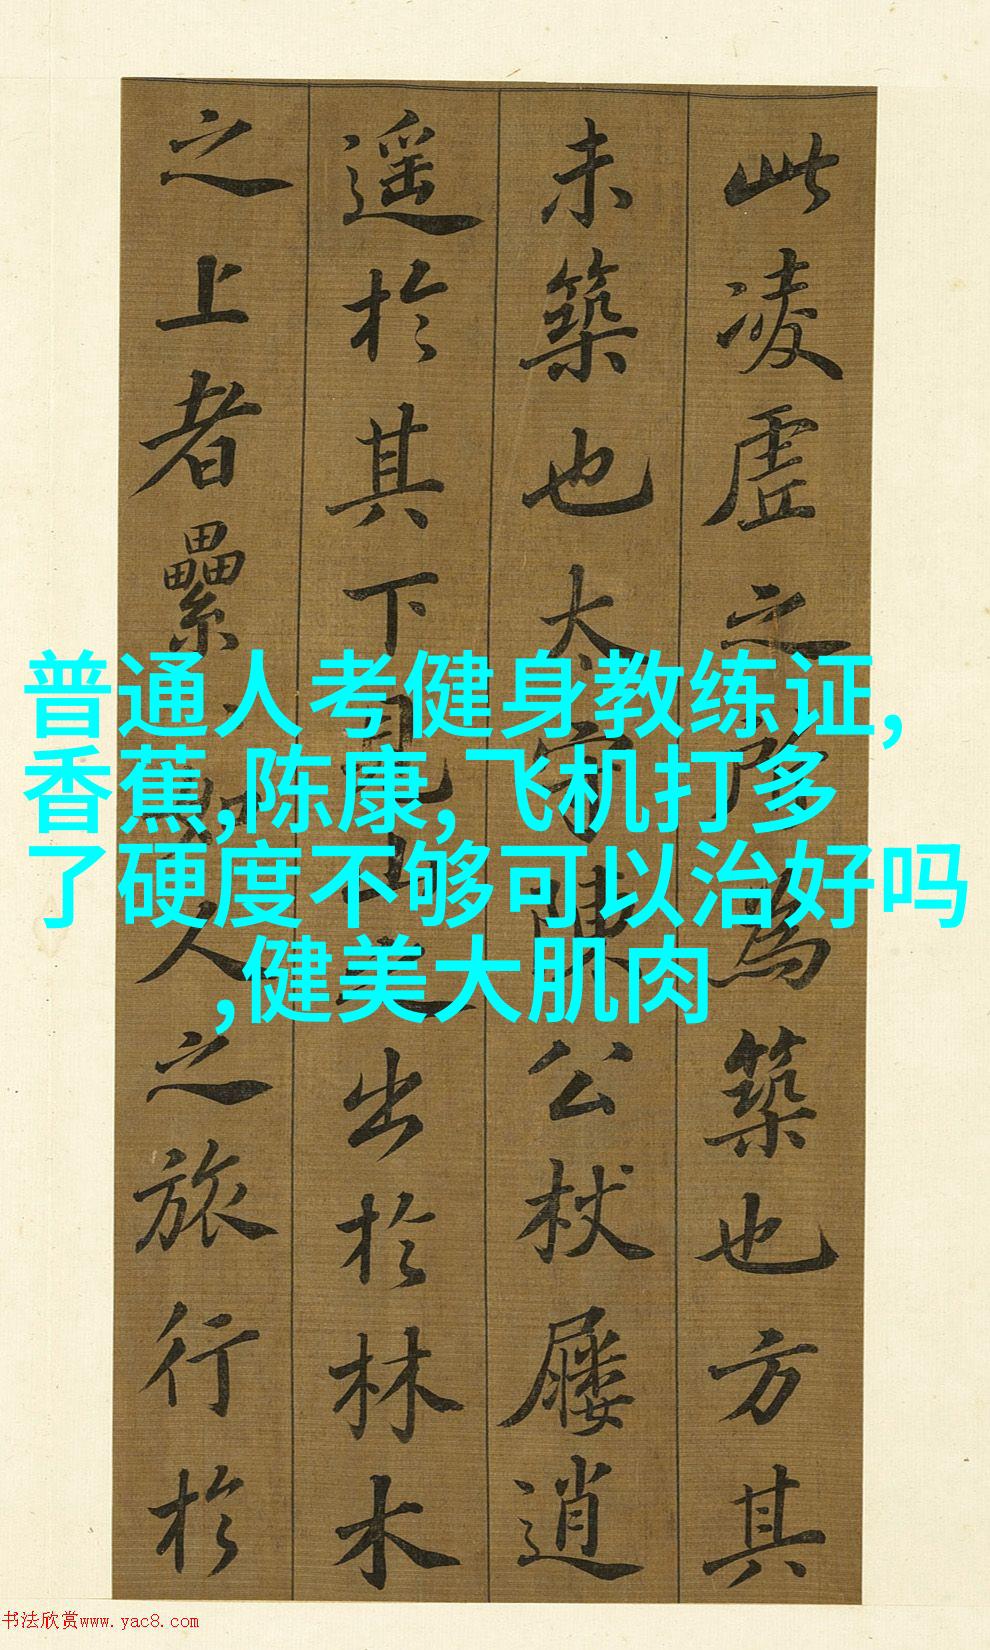 此凌虗之所為築也方其
未築也太守陳公杖屨逍
遥於其下見山之出於林木
之上者纍纍如人之旅行於
普通人考健身教练证,
香蕉,陈康,飞机打多
了硬度不够可以治好吗
,健美大肌肉
书法欣赏www.yac8.com